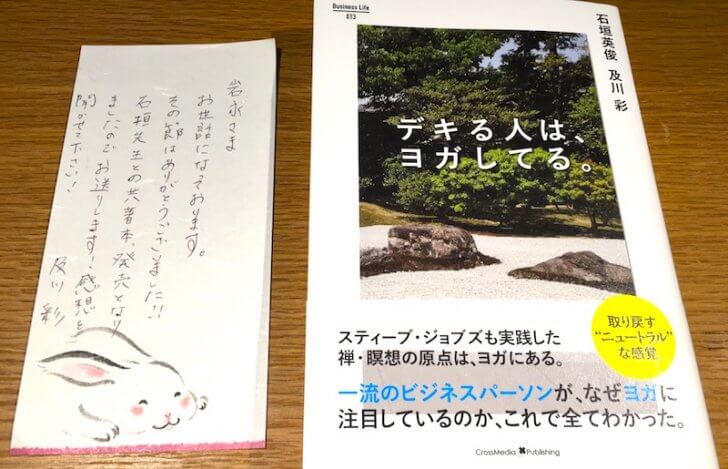 岩永さま
お世話になっております。
その節はありがとうございました!!
石垣先生との共著本、発売となり
ましたのでお送りします!、感想を
聞かせて下さい!
及川 彩
Business Life
013
石垣英俊 及川 彩
デキる人は、
ヨガしてる。
取り戻す
“ニュートラル”
な感覚
スティーブ・ジョブズも実践した
禅・瞑想の原点は、ヨガにある。
一流のビジネスパーソンが、なぜヨガに
注目しているのか、これで全てわかった。
CrossMedia Publishing